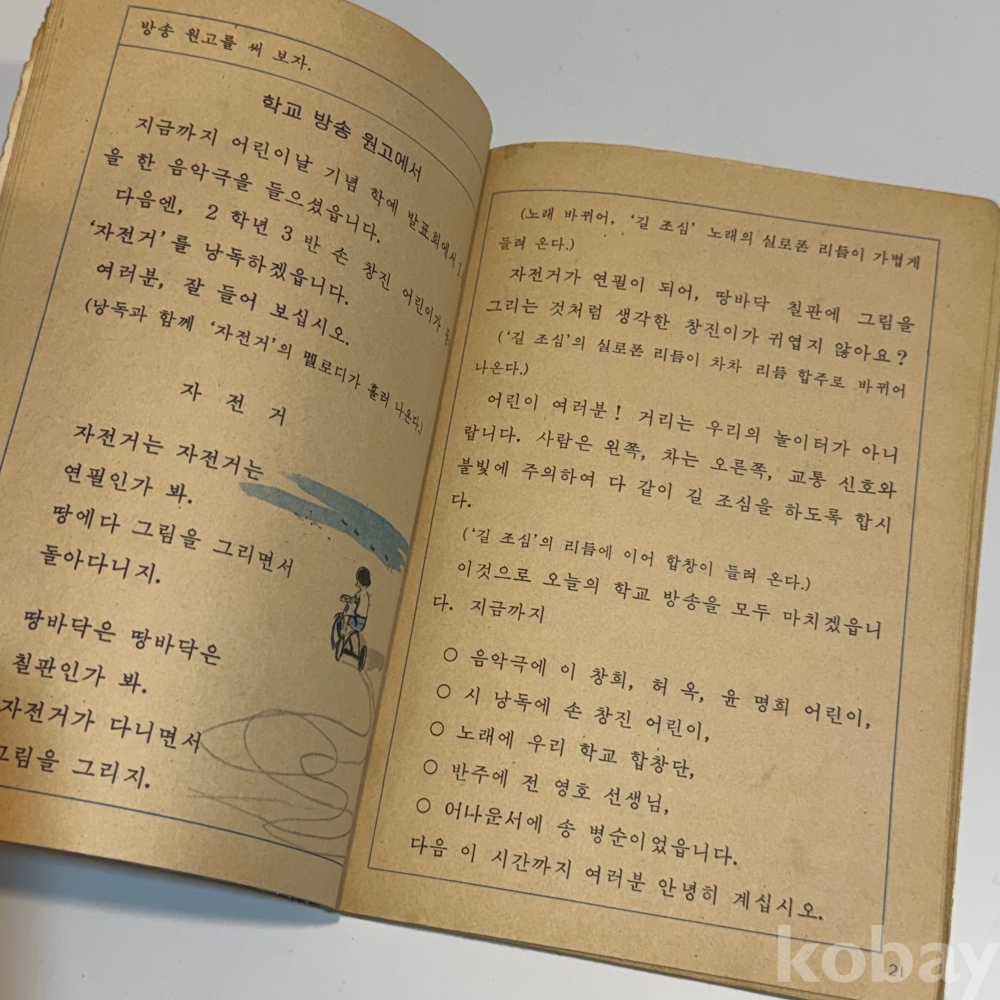 방송 원고를 써 보자.
학교 방송 원고에서
지금까지 어린이날 기념 학예 발표회에서
을 한 음악극을 들으셨읍니다.
다음엔, 2 학년 3 반 손 창진 어린이가
'자전거'를 낭독하겠읍니다.
여러분, 잘 들어 보십시오.
(낭독과 함께 '자전거'의 멜로디가 흘러 나온다.)
자 전 거
자전거는 자전거는
연필인가 봐.
땅에다 그림을 그리면서
돌아다니지.
땅바닥은 땅바닥은
칠판인가 봐.
자전거가 다니면서
그림을 그리지.
(노래 바뀌어, '길 조심' 노래의 실로폰 리듬이 가볍게
들려 온다.)
자전거가 연필이 되어, 땅바닥 칠판에 그림을
그리는 것처럼 생각한 창진이가 귀엽지 않아요?
('길 조심'의 실로폰 리듬이 차차 리듬 합주로 바뀌어
나온다.)
어린이 여러분! 거리는 우리의 놀이터가 아니
랍니다. 사람은 왼쪽, 차는 오른쪽, 교통 신호와
불빛에 주의하여 다 같이 길 조심을 하도록 합시
다.
('길 조심'의 리듬에 이어 합창이 들려 온다.)
이것으로 오늘의 학교 방송을 모두 마치겠읍니
다. 지금까지
○ 음악극에 이 창희, 허 옥, 윤 명희 어린이,
○ 시 낭독에 손 창진 어린이,
○ 노래에 우리 학교 합창단,
○ 반주에 전 영호 선생님,
○ 어나운서에 송 병순이었읍니다.
다음 이 시간까지 여러분 안녕히 계십시오.
21
kobay